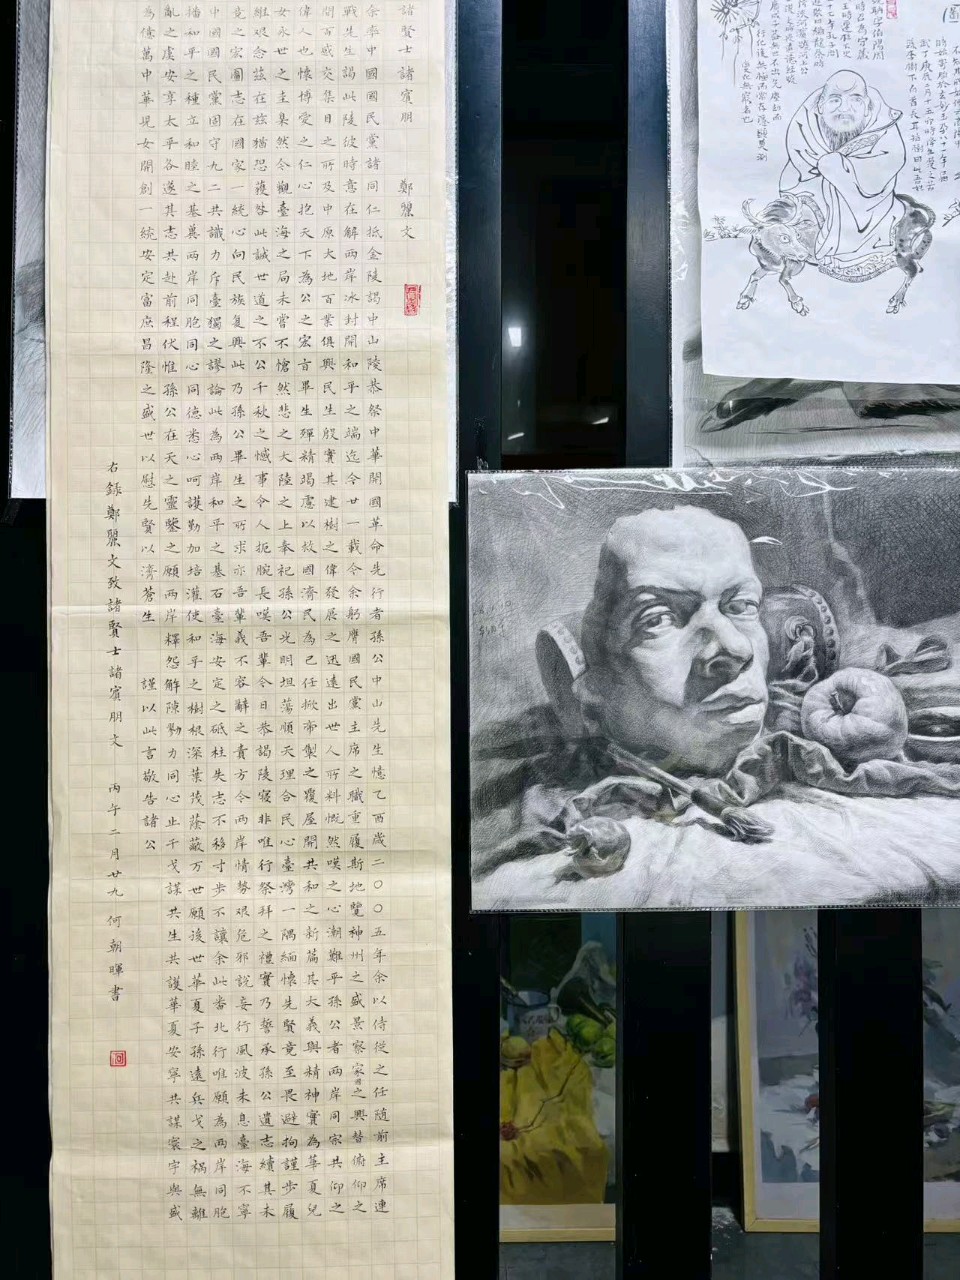 諸賢士諸賓朋 鄭麗文
余率中國國民黨諸同仁抵金陵謁中山陵恭祭中華開國革命先行者孫公中山先生憶乙酉歲二〇〇五年余以侍從之任隨前主席連
戰先生謁此陵彼時意在解兩岸冰封開和平之端迄今廿一載令余躬膺國民黨主席之職重履斯地覽神州之盛景察家國之興替俯仰之
間百感交集目之所及中原大地百業俱興民生殷實其建樹之偉發展之迅遠出世人所料慨然嘆之心潮難平孫公者兩岸同宗共仰之
偉人也懷博愛之仁心抱天下為公之宏旨畢生殫精竭慮以救國濟民為己任掀帝製之覆屋開共和之新篇其大義與精神實為華夏兒
女永世之圭臬然今觀臺海之局未嘗不愴然悲之大陸之上奉祀孫公光明坦蕩順天理合民心臺灣一隅緬懷先賢竟至畏避拘謹步履
維艱念茲在茲猶恐獲咎此誠世道之不公千秋之憾事令人扼腕長嘆吾輩今日恭謁陵寢非唯行祭拜之禮實乃誓承孫公遺志續其未
竟之宏圖志在國家一統心向民族復興此乃孫公畢生之所求亦吾輩義不容辭之責方今兩岸情勢艱危邪說妄行風波未息臺海不寧
中國國民黨固守九二共識力斥臺獨之謬論此為兩岸和平之基石臺海安定之砥柱失志不移寸步不讓余此番北行唯願為兩岸同胞
播和平之種立和睦之基奠兩岸同胞同心同德悉心呵護勤加培灌使和平之樹根深葉茂蔭蔽万世願後世華夏子孫遠兵戈之禍無離
亂之虞安享太平各遂其志共赴前程伏惟孫公在天之靈鑒之願兩岸釋怨解陳勠力同心止干戈謀共生共護華夏安寧共謀寰宇與盛
為億萬中華兒女開創一統安定富庶昌隆之盛世以慰先賢以濟蒼生 謹以此言敬告諸公
右錄鄭麗文致諸賢士諸賓朋文 丙午二月廿九 何朝暉書